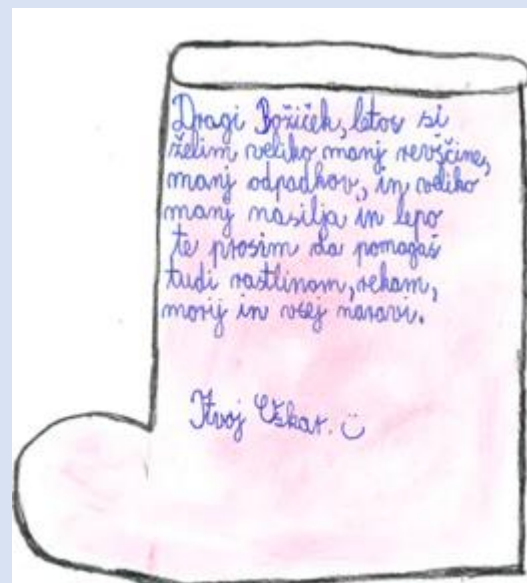 Dragi Božiček, letos si
želim veliko manj revščine,
manj odpadkov, in veliko
manj nasilja in lepo
te prosim da pomagaš
tudi rastlinam, rekam,
morij in vsej naravi.
Tvoj Oskar. ☺